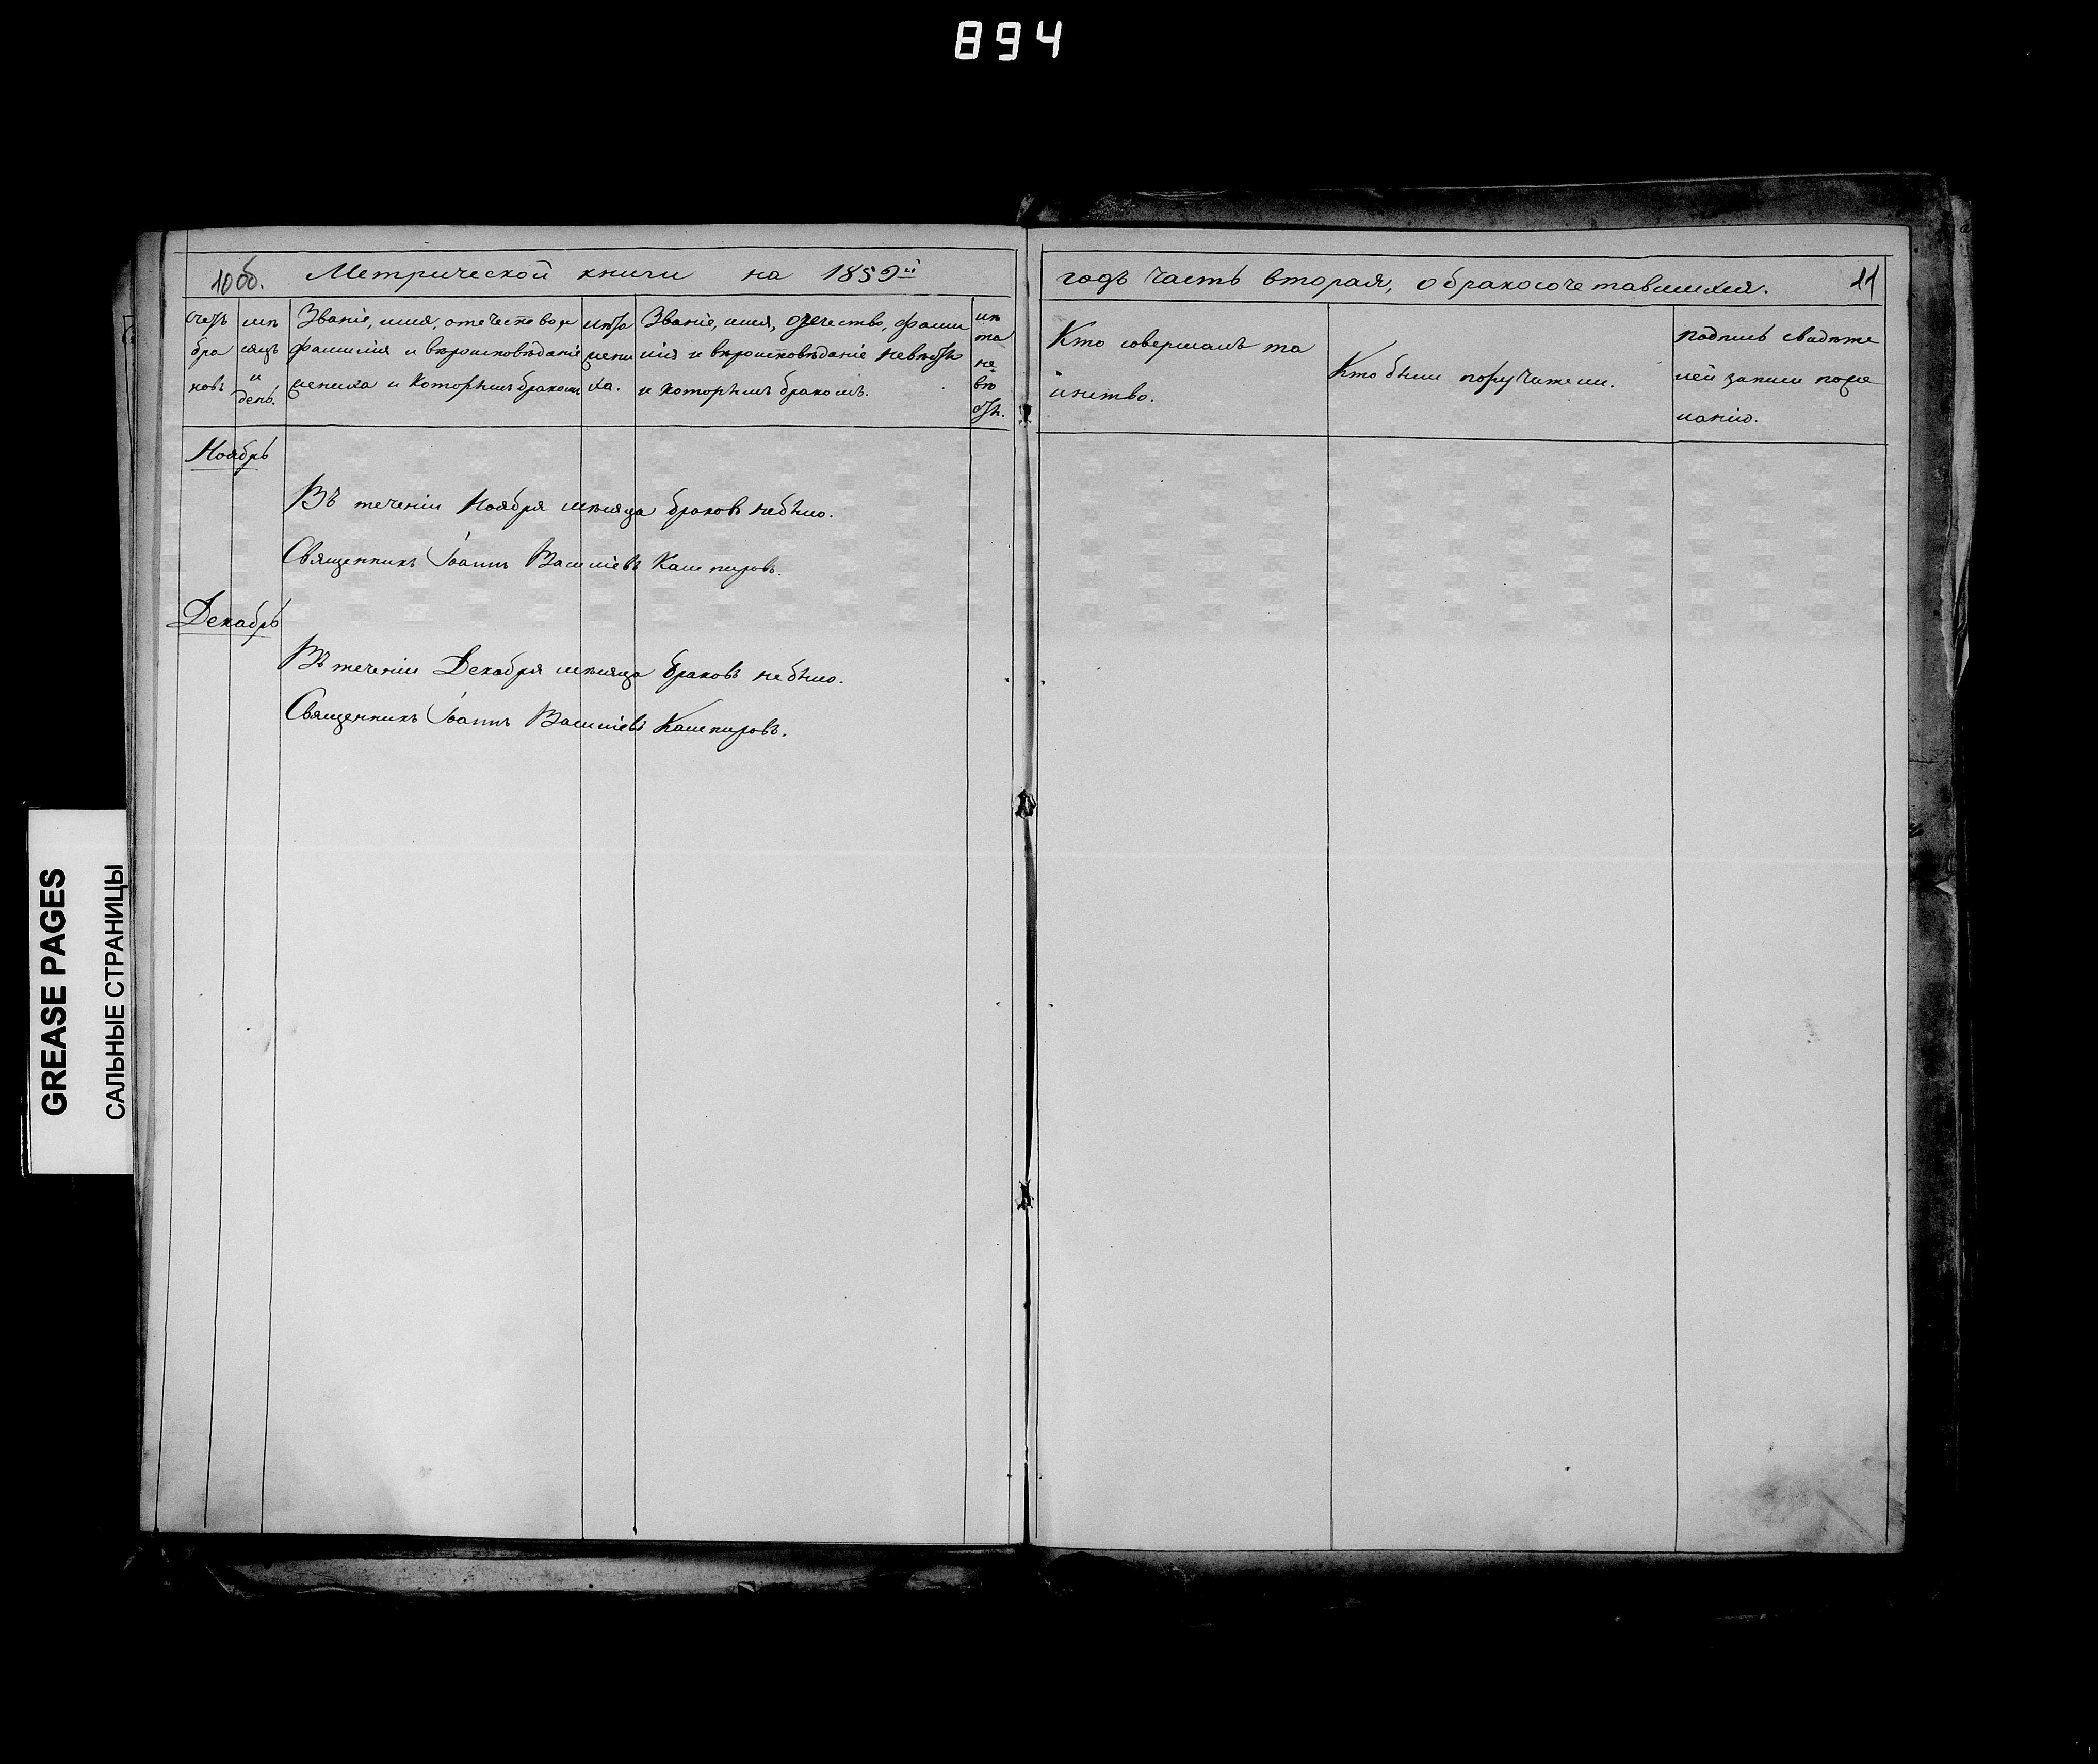 894
10об. Метрической книги на 1859й
годъ часть вторая, о бракосочетавшихся. 11
Счетъ
бра
ковъ
мѣ
сяцъ
и
день.
Званіе, имя, отечество, и
фамилія и вѣроисповѣданіе
жениха и которымъ бракомъ
лѣта
жени
ха.
Званіе, имя, отечество, фами
лія и вѣроисповѣданіе невѣсты
и которымъ бракомъ.
лѣ
та
не
вѣ
сты.
Кто совершалъ та
инство.
Кто были поручители.
подпись свидѣте
лей записи по же
ланію.
Ноябрь
Въ теченіи Ноября мѣсяца браковъ небыло.
Священникъ Іоаннъ Василіевъ Кашпировъ.
Декабрь
Въ теченіи Декабря мѣсяца браковъ небыло.
Священникъ Іоаннъ Василіевъ Кашпировъ.
GREASE PAGES
САЛЬНЫЕ СТРАНИЦЫ